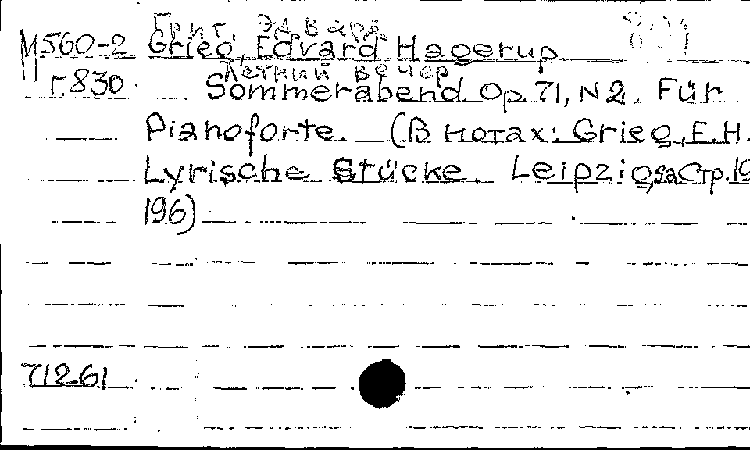 Григ, Эдвард
М560-2 Grieg, Edvard Hagerup
Летний вечер
г.830 Sommerabend. Op. 71, N 2. Für
Pianoforte. (В нотах: Grieg, E.H.
Lyrische Stücke. Leipzig, sa Стр. 19
196)
71261